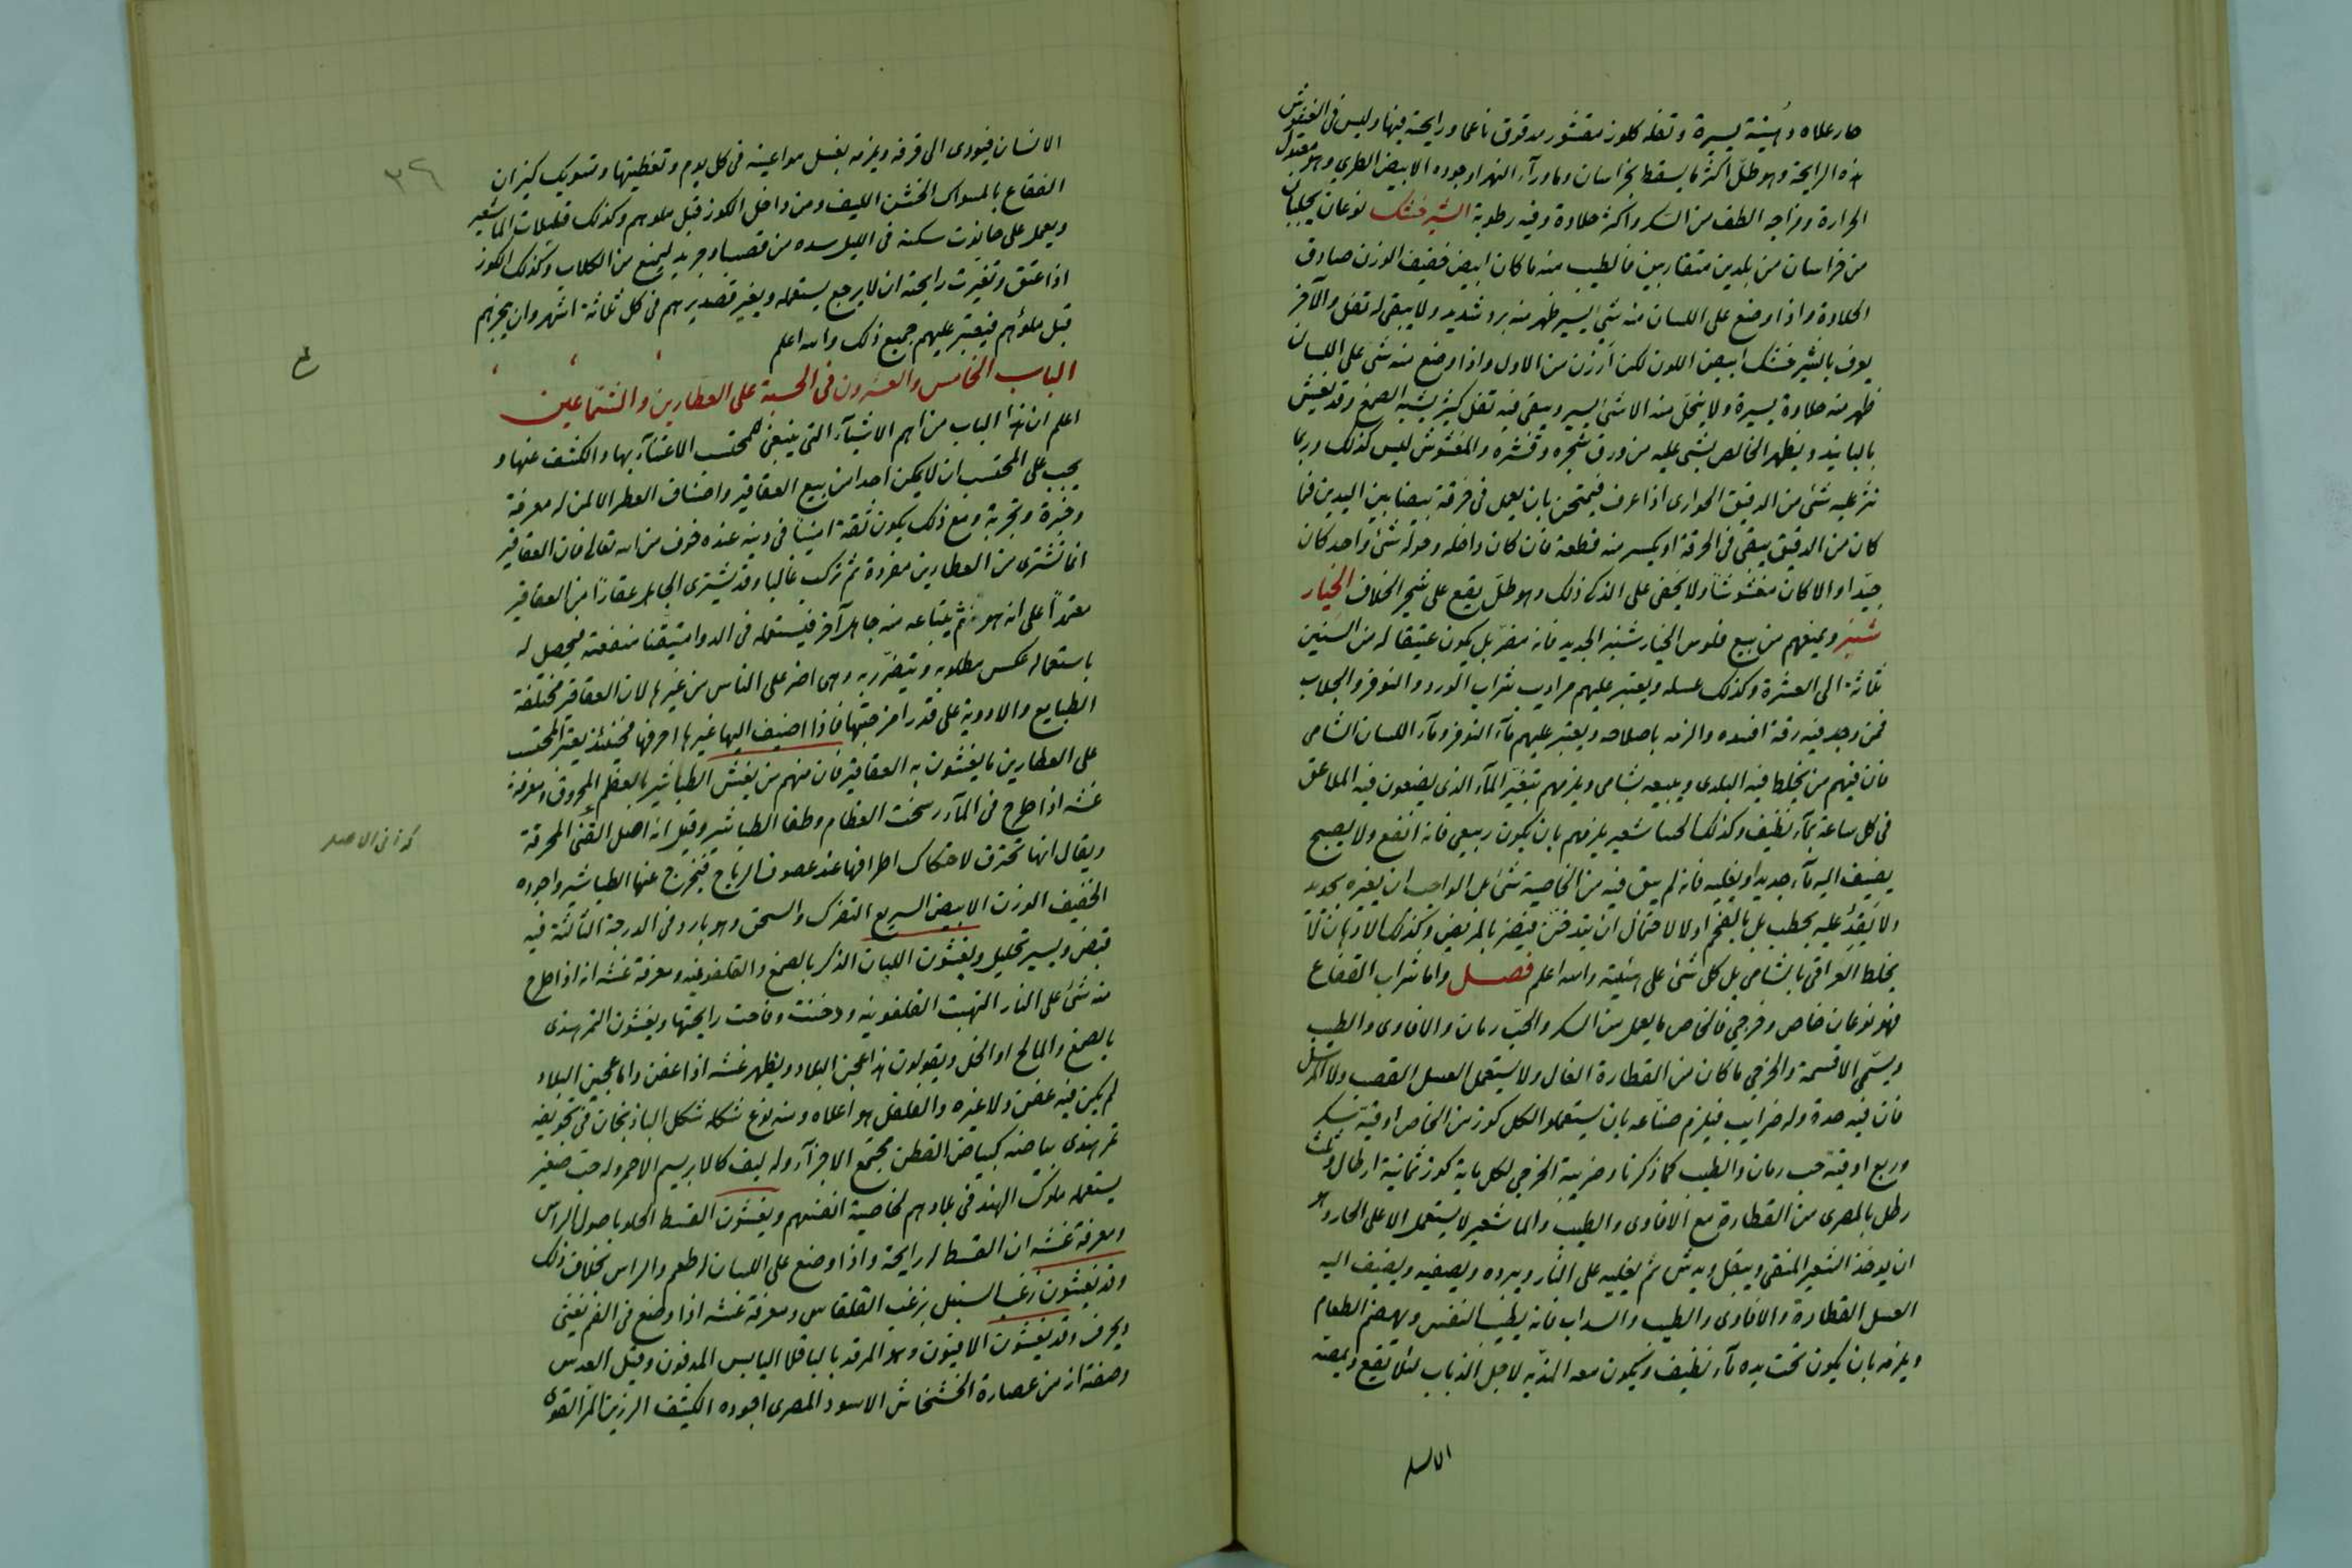 حار علاه دهنية يسيرة وتفله كلوز مقشور مدقوق ناعما ورايحته فيها وليس فى المغشوش
هذه الرايحة وهو طلّ اكثر ما يسقط بخراسان وما ورآء النهر اوجوده الابيض الطرى وهو معتدل
الحرارة ومزاجه الطف من السكر واكثر حلاوة وفيه رطوبة الشيرخشك نوعان يجلبان
من خراسان من بلدين متقاربين فالطيب منه ما كان ابيض خفيف الوزن صادق
الحلاوة واذا وضع على اللسان منه شئ يسير ظهر منه برد شديد ولا يبقى له تفل والآخر
يعرف بالشيرخشك ابيض اللون لكن ارزن من الاول واذا وضع منه شئ على اللسان
ظهر منه حلاوة يسيرة ولا ينحل منه الا شئ يسير ويبقى فيه تفل كثير يشبه الصمغ وقد يغش
بالبانيد ويظهر الخالص بشى عليه من ورق شجره وقشره والمغشوش ليس كذلك وربما
نثر عليه شئ من الدقيق الحوارى اذا عرف فيمتحن بان يعمل فى خرقة بيضا بين اليدين فما
كان من الدقيق يبقى فى الخرقة او يكسر منه قطعة فان كان داخله وحوله شئ واحد كان
جيدا والا كان مغشوشاً ولا يخفى على الذكى ذلك وهو طلّ يقع على شجر الخلاف الخيار
شنبر ويمنعهم من بيع فلوس الخيار شنبر الجديد فانه مضرّ بل يكون عتيقا له من السنين
ثلاثة الى العشرة وكذلك عسله ويعتبر عليهم مراديب شراب الورد والنوفر والجلاب
فمن وجد فيه رقة افسده والزمه باصلاحه ويعتبر عليهم مآء النوفر ومآء اللسان الشامى
فان فيهم من يخلط فيه البلدى ويبيعه بشامى ويلزمهم بتغيّر المآء الذى يضعون فيه الملاعق
فى كل ساعة بمآء نظيف وكذلك الحسا شعير يلزمهم بان يكون ربيعى فانه انفع ولا يصبح
يضيف اليه مآء جديد او يغليه فانه لم يبق فيه من الخاصية شئ بل الواجب ان يغيره بجديد
ولا يقد عليه بحطب بل بالفحم اولا لاحتمال ان يتدخّن فيضر بالمريض وكذلك الادهان لا
يخلط العراقى بالشامى بل كل شئ على هيئته والله اعلم فصل واما شراب الفقاع
فهو نوعان خاص وخرجى فالخاص ما يعمل من السكر والحبّ رمان والافاوى والطيب
ويسمى الاقسمة والخرجى ما كان من القطارة العال ولا يستعمل العسل القصب ولا المرسل
فان فيه حدة وله ضرايب فيلزم صناعه بان يستعملو الكل كوز من الخاص اوقية سكر
وربع اوقية حب رمان والطيب كما ذكرنا وضريبة الخرجى لكل ماية كوز ثمانية ارطال وثلث
رطل بالمصرى من القطارة مع الافاوى والطيب والما شعير لا يستعمل الا على الحار وهو
ان يوخذ الشعير المنقى ويبقل ويدش ثم يغليه على النار ويبرده ويصفيه ويضيف اليه
العسل القطارة والافاوى والطيب والسداب فانه يطيب النفس ويهضم الطعام
ويلزمه بان يكون تحت يده مآء نظيف ويكون معه المذبه لاجل الذباب لئلا تقع ويمصه
الانسان
٣٦
الانسان فيؤدى الى قرفه ويلزمه بغسل مواعينه فى كل يوم وتغطيتها وتسويك كيزان
الفقاع بالمسواك الخشن الليف ومن داخل الكوز قبل ملوهم وكذلك قليلات الما شعير
ويعمل على حانوت سكنه فى الليل سده من قصب او جريد ليمنع من الكلاب وكذلك الكوز
اذا عتق وتغيرت رايحته ان لا يرجع يستعمله ويغير قصديرهم فى كل ثلاثة اشهر وان يبخرهم
قبل ملؤهم فيعتبر عليهم جميع ذلك والله اعلم
الباب الخامس والعشرون فى الحسبة على العطارين والشماعين
اعلم ان هذا الباب من اهم الاشيآء التى ينبغى للمحتسب الاعتنآء بها والكشف عنها و
يجب على المحتسب ان لا يمكن احدا من بيع العقاقير واصناف العطر الا لمن له معرفة
وخبرة وتجربة ومع ذلك يكون ثقة امينا فى دينه عنده خوف من الله تعالى فان العقاقير
انما تشترى من العطارين مفردة ثم تركب غالبا وقد يشترى الجاهل عقارا من العقاقير
معتمدا على انه هو ثم يبتاعه منه جاهل آخر فيستعمله فى الدوا متيقنا منفعته فيحصل له
باستعماله عكس مطلوبه ويتضرر به وهى اضر على الناس من غيرها لان العقاقير مختلفة
الطبايع والادوية على قدر امزجتها فاذا اضيف اليها غيرها احرفها فحينئذ يعتبر المحتسب
على العطارين ما يغشون به العقاقير فان منهم من يغش الطباشير بالعظم المحروق ومعرفة
غشه اذا طرح فى المآء رسخت العظام وطفا الطباشير وقيل انه اصل القنى المحرقة
كذا فى الاصل
ويقال انها تحترق لاحتكاك اطرافها عند عصوف الرياح فيخرج عنها الطباشير واجوده
الخفيف الوزن الابيض السريع التفرك والسحق وهو بارد فى الدرجة الثالثة فيه
قبض ويسير تحليل ويغشون اللبان الذكر بالصمغ والقلفونيه ومعرفة غشه انه اذا طرح
منه شئ على النار التهبت القلفونيه ودخنت وفاحت رايحتها ويغشون التمر هندى
بالصمغ والمالح او الخل ويقولون هذا عجن البلاد ويظهر غشه اذا عفن واما عجين البلاد
لم يكن فيه عفن ولا غيره والفلفل هو اعلاه ومنه نوع شكله شكل الباذنجان فى تجويفه
تمر هندى بياضه كبياض القطن مجتمع الاجزآء وله ليف كالابريسم الاحمر وله حب صغير
يستعمله ملوك الهند فى بلادهم لخاصية انفسهم ويغشون القسط الحلو باصول الراس
ومعرفة غشه ان القسط له رايحة واذا وضع على اللسان له طعم والراس بخلاف ذلك
وقد يغشون زغب السنبل بزغب القلقاس ومعرفة غشه اذا وضع فى الفم يغثى
ويحرف وقد يغشون الافيون وهو المرقد بالباقلا اليابس المدقوق وقيل العدس
وصفته انه من عصارة الخشخاش الاسود المصرى اجوده الكثيف الرزين المر القوى